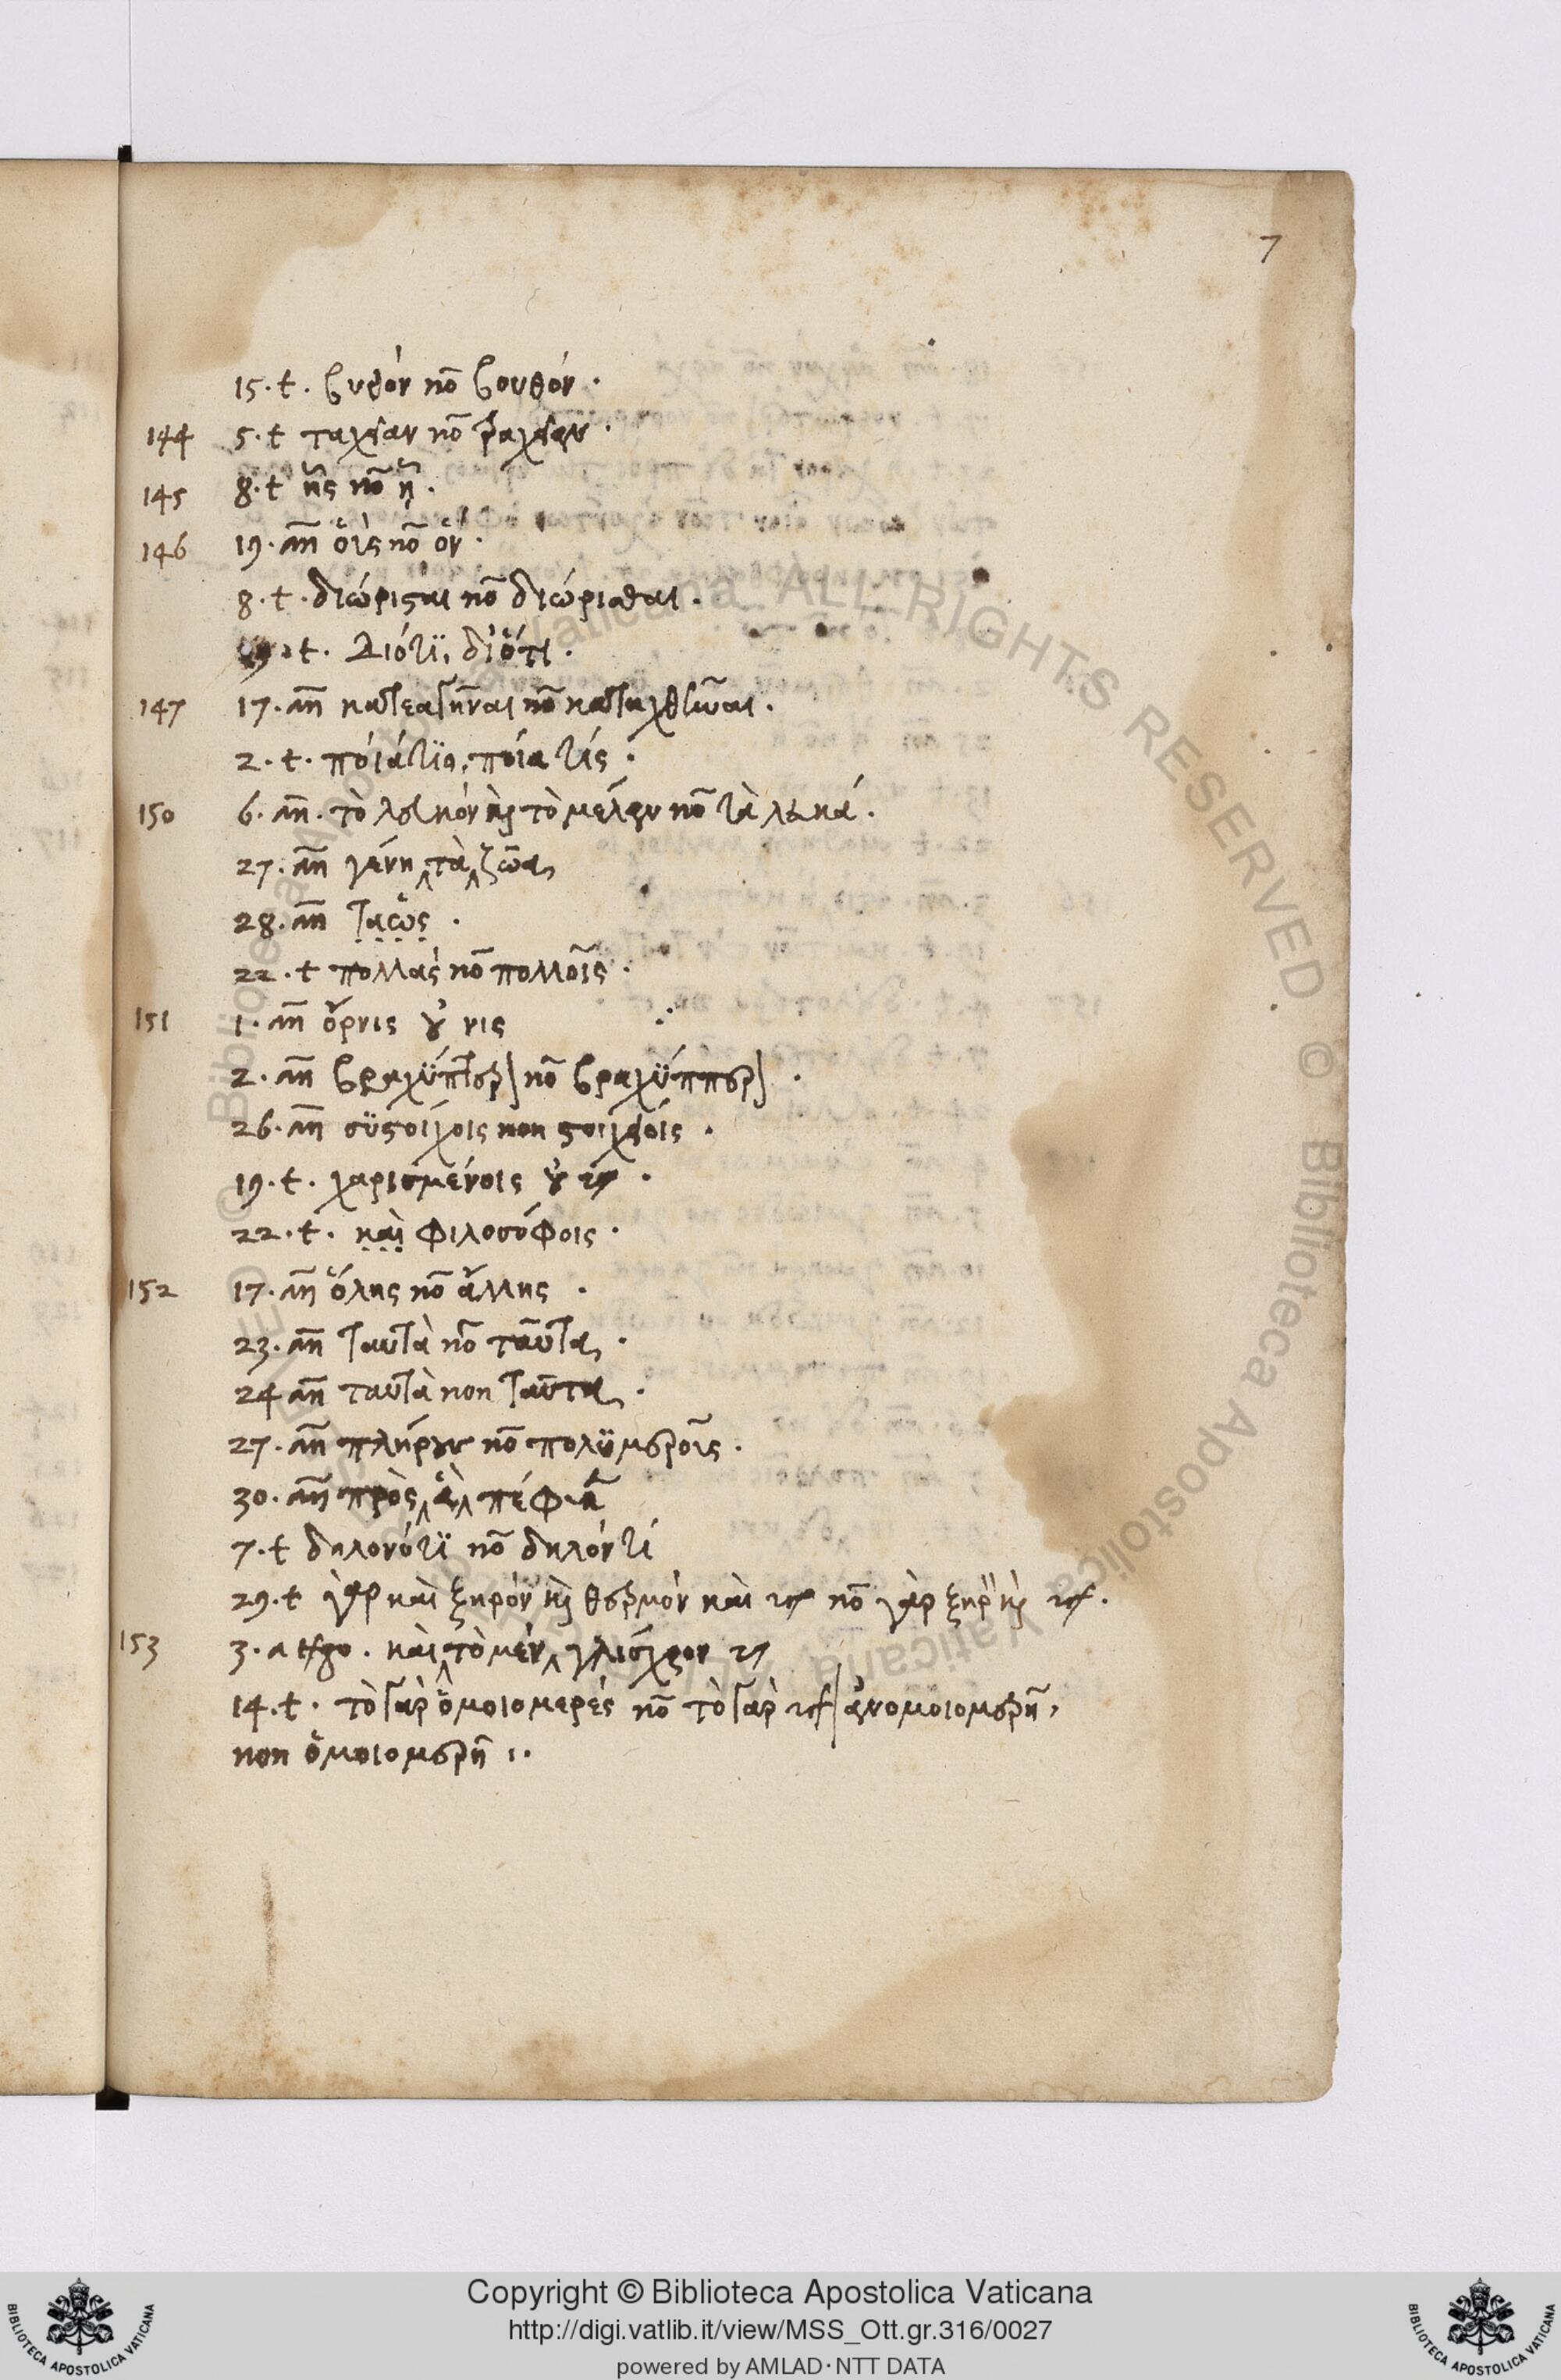 7
15. t. βυθόν nō βουθόν.
144 5. t ταχεῖαν nō τραχεῖαν.
145 8. t ἧς nō ᾗ.
146 19. an̄ οἷς nō ὅν.
8. t. διώρισται nō διώρισθαι.
19. t. Διότι, δι' ὅτι.
147 17. an̄ κατεαγῆναι nō καταχθῆναι.
2. t. ποιάτις, ποία τίς.
150 6. an̄. τὸ λευκόν καὶ τὸ μέλαν nō τὰ λευκά.
27. an̄ γένη ‸τὰ‸ ζῶα,
28. an̄ ταῶς.
22. t πολλάς nō πολλοῖς.
151 1. an̄ ὄρνις ȣ̓ νις
2. an̄ βραχύπτερ] nō βραχύππερ].
26. an̄ συστοίχοις non στοιχείοις.
19. t. χαρισμένοις ȣ̓
22. t. καὶ φιλοσόφοις.
152 17. an̄ ὅλης nō ἄλλης.
23. an̄ ταυτὰ nō ταῦτα,.
24 an̄ ταυτὰ non ταῦτα,.
27. an̄ πλήρους nō πολυμεροῖς.
30. an̄ πρὸς‸ ἃ‸ πέφυκε
7. t δηλονότι nō δηλόντι
29. t γὰρ καὶ ξηρόν καὶ θερμόν καὶ nō γὰρ ξηρὸν καὶ
153 3. a tergo. καὶ ‸τὸ μέν‸ γλισχρον
14. t. τὸ γὰρ ὁμοιομερές nō τὸ γὰρ | ἀνομοιομερῆ,
non ὁμοιομερῆ ..
Copyright © Biblioteca Apostolica Vaticana
http://digi.vatlib.it/view/MSS_Ott.gr.316/0027
powered by AMLAD·NTT DATA
BIBLIOTECA APOSTOLICA VATICANA
BIBLIOTECA APOSTOLICA VATICANA